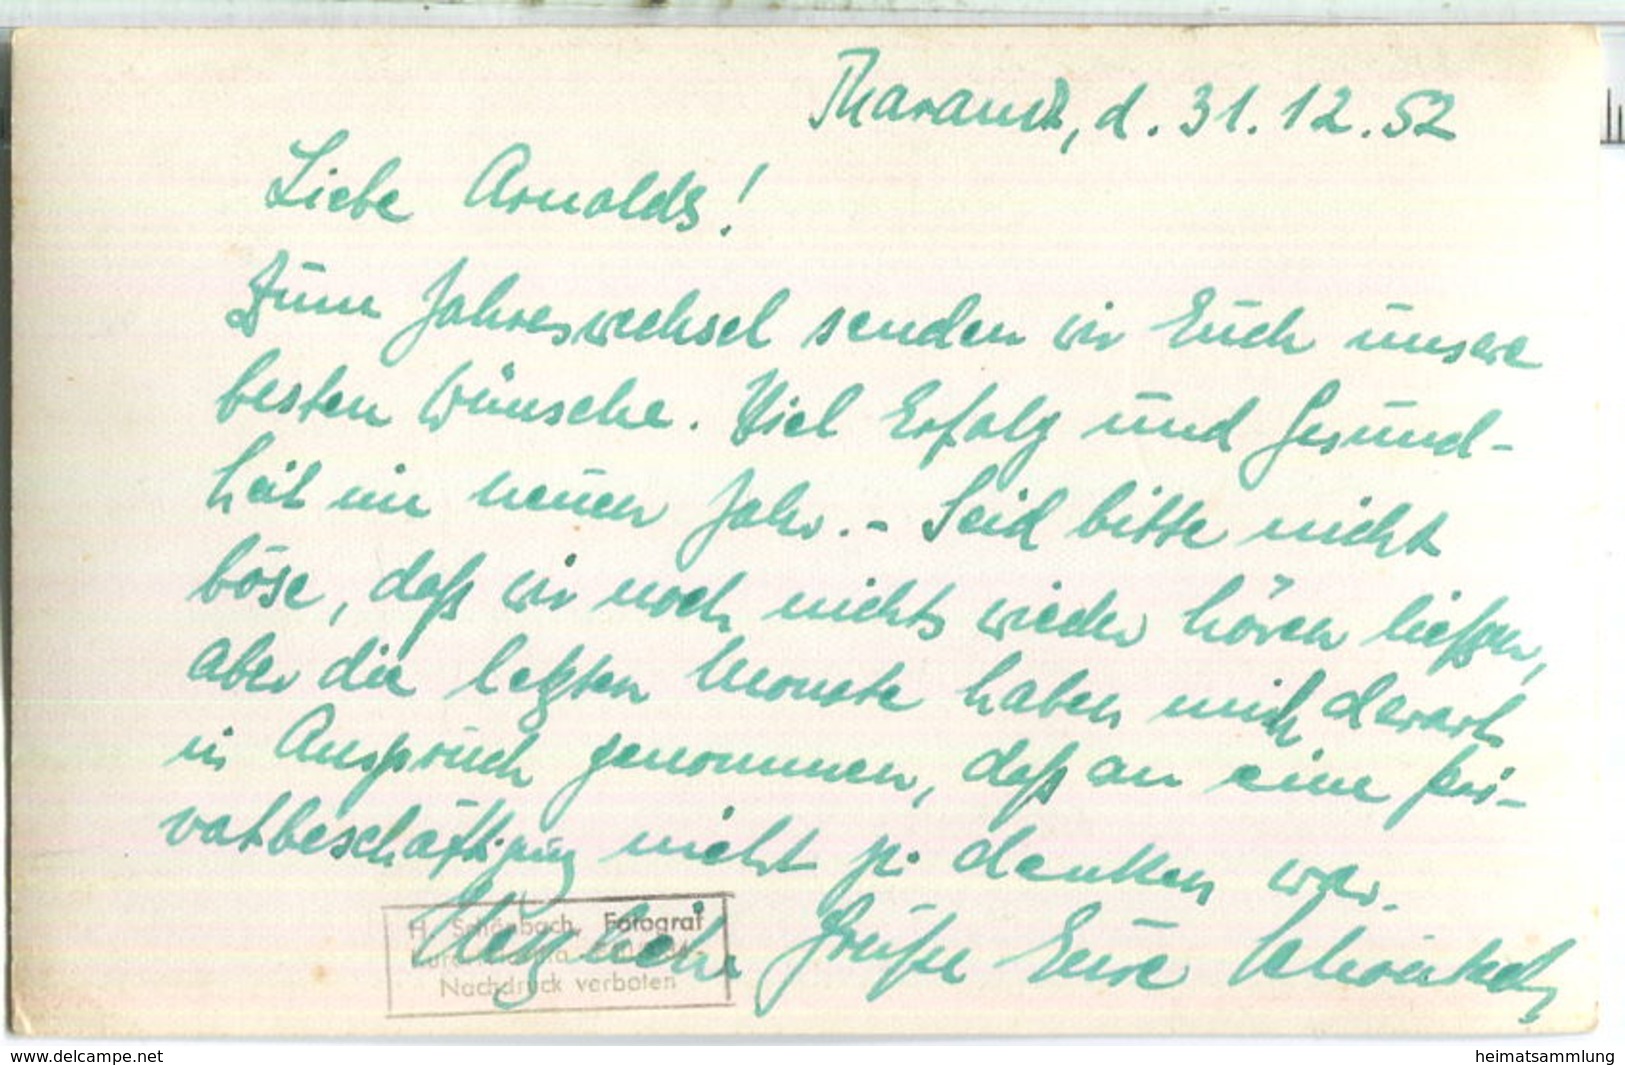 Tharandt, d. 31.12.52
Liebe Arnolds!
Zum Jahreswechsel senden wir Euch unsere
besten Wünsche. Viel Erfolg und Gesund-
heit im neuen Jahr. - Seid bitte nicht
böse, daß wir noch nichts wieder hören ließen,
aber die letzten Monate haben mich derart
in Anspruch genommen, daß an eine Pri-
vatbeschäftigung nicht z. denken war.
Herzliche Grüße Eure
H. Schönbach, Fotograf
Nachdruck verboten
www.delcampe.net
heimatsammlung